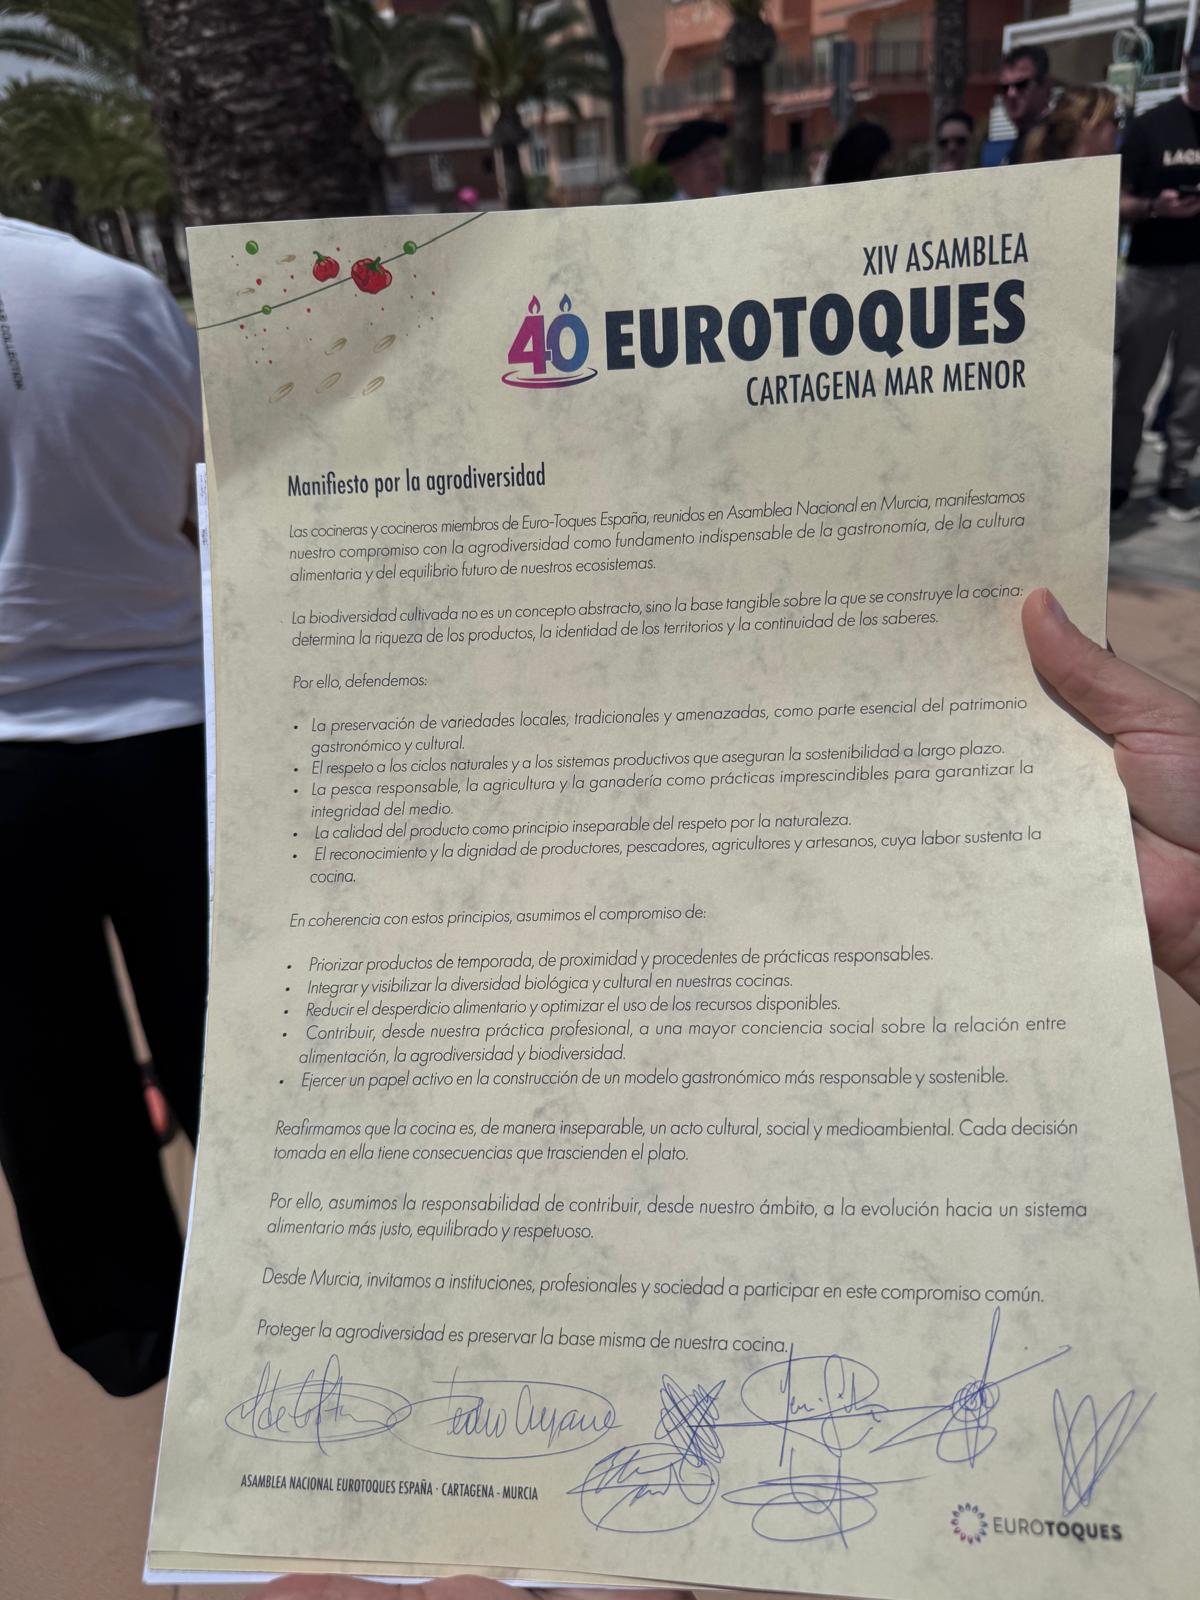 XIV ASAMBLEA
40 EUROTOQUES
CARTAGENA MAR MENOR
Manifiesto por la agrodiversidad
Las cocineras y cocineros miembros de Euro-Toques España, reunidos en Asamblea Nacional en Murcia, manifestamos
nuestro compromiso con la agrodiversidad como fundamento indispensable de la gastronomía, de la cultura
alimentaria y del equilibrio futuro de nuestros ecosistemas.
La biodiversidad cultivada no es un concepto abstracto, sino la base tangible sobre la que se construye la cocina:
determina la riqueza de los productos, la identidad de los territorios y la continuidad de los saberes.
Por ello, defendemos:
• La preservación de variedades locales, tradicionales y amenazadas, como parte esencial del patrimonio
gastronómico y cultural.
• El respeto a los ciclos naturales y a los sistemas productivos que aseguran la sostenibilidad a largo plazo.
• La pesca responsable, la agricultura y la ganadería como prácticas imprescindibles para garantizar la
integridad del medio.
• La calidad del producto como principio inseparable del respeto por la naturaleza.
• El reconocimiento y la dignidad de productores, pescadores, agricultores y artesanos, cuya labor sustenta la
cocina.
En coherencia con estos principios, asumimos el compromiso de:
• Priorizar productos de temporada, de proximidad y procedentes de prácticas responsables.
• Integrar y visibilizar la diversidad biológica y cultural en nuestras cocinas.
• Reducir el desperdicio alimentario y optimizar el uso de los recursos disponibles.
• Contribuir, desde nuestra práctica profesional, a una mayor conciencia social sobre la relación entre
alimentación, la agrodiversidad y biodiversidad.
• Ejercer un papel activo en la construcción de un modelo gastronómico más responsable y sostenible.
Reafirmamos que la cocina es, de manera inseparable, un acto cultural, social y medioambiental. Cada decisión
tomada en ella tiene consecuencias que trascienden el plato.
Por ello, asumimos la responsabilidad de contribuir, desde nuestro ámbito, a la evolución hacia un sistema
alimentario más justo, equilibrado y respetuoso.
Desde Murcia, invitamos a instituciones, profesionales y sociedad a participar en este compromiso común.
Proteger la agrodiversidad es preservar la base misma de nuestra cocina.
Pedro
ASAMBLEA NACIONAL EUROTOQUES ESPAÑA · CARTAGENA - MURCIA
EUROTOQUES
COLLECTION